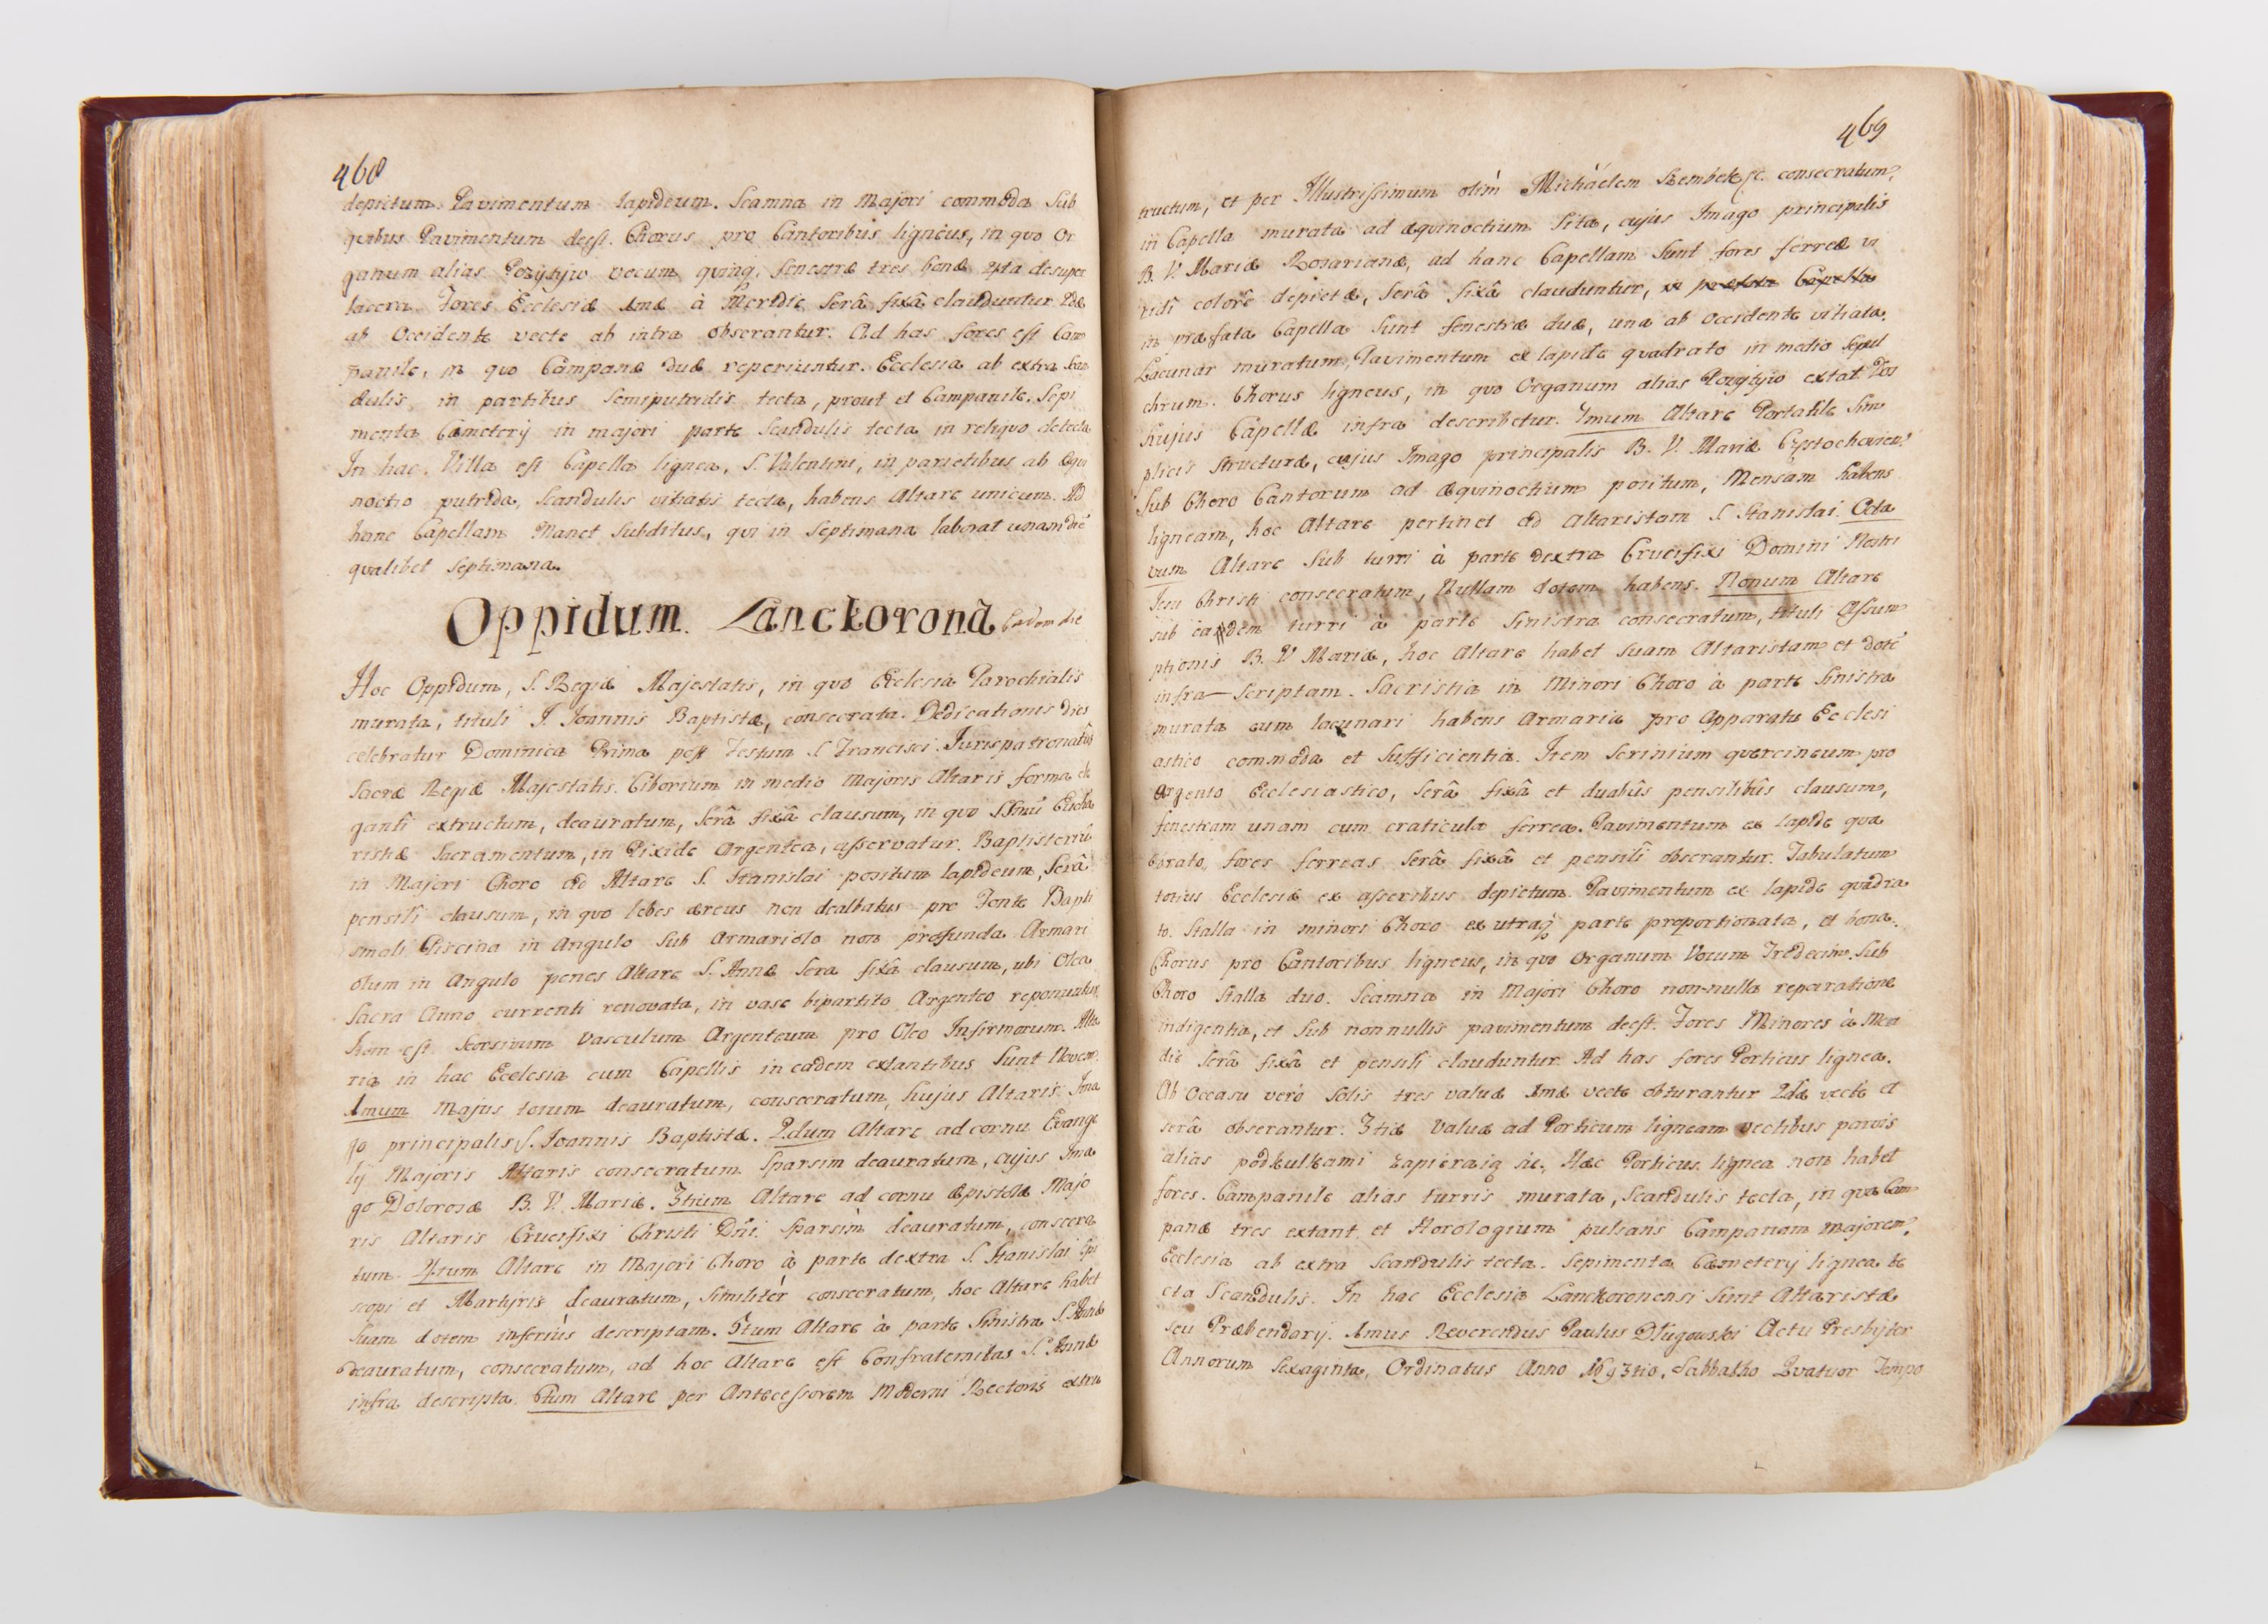 468
depictum. Pavimentum lapideum. Scamna in Majori commoda sub
quibus Pavimentum deest. Chorus pro Cantoribus ligneus, in quo Or
ganum alias Pozytyw vocum quinq, fenestræ tres bonæ 4ta desuper
lacera. Fores Ecclesiæ 1mæ à Meridie serâ fixâ clauduntur 2dæ
ab Occidente vecte ab intra obserantur. Ad has fores est Cam
panile, in quo Campanæ duæ reperiuntur. Ecclesia ab extra Scan
dulis in partibus semiputridis tecta, prout et Campanile. Sepi
menta Cæmeterij in majori parte Scandulis tecta in reliquo detecta
In hac Villa est Capella lignea, S. Valentini, in parietibus ab æqui
noctio putrida, Scandulis vitiatis tecta, habens Altare unicum. Ad
hanc Capellam Manet Subditus, qui in Septimana laborat unam diē
qualibet Septimana.
Oppidum. Lanckorona Eadem die
Hoc Oppidum, S. Regiæ Majestatis, in quo Ecclesia Parochialis
murata, tituli S. Joannis Baptistæ, consecrata. Dedicationis dies
celebratur Dominica Prima post Festum S Francisci. Jurispatronatûs
Sacræ Regiæ Majestatis. Ciborium in medio Majoris Altaris forma ele
ganti extructum, deauratum, serâ fixâ clausum, in quo SSmū Eucha
ristiæ Sacramentum, in Pixide Argentea, asservatur. Baptisteriū
in Majori Choro ad Altare S. Stanislai positum lapideum, Serâ
pensili clausum, in quo lebes æreus non dealbatus pro Fonte Bapti
smali Piscina in Angulo sub Armariolo non profunda Armari
olum in Angulo penes Altare S. Annæ sera fixâ clausum, ubi Olea
Sacra Anno currenti renovata, in vase bipartito Argenteo reponuntur
Item est Seorsivum Vasculum Argenteum pro Oleo Infirmorum. Alta
ria in hac Ecclesia cum Capellis in eadem extantibus Sunt Novem.
1mum Majus totum deauratum, consecratum, hujus Altaris Ima
go principalis S. Joannis Baptistæ. 2dum Altare ad cornu Evange
lij Majoris Altaris consecratum Sparsim deauratum, cujus Ima
go Dolorosæ B. V. Mariæ. 3tium Altare ad cornu Epistolæ Majo
ris Altaris Crucifixi Christi Dñi. Sparsim deauratum, consecra
tum. 4tum Altare in Majori Choro à parte dextra S. Stanislai Epi
scopi et Martyris deauratum, Similiter consecratum, hoc Altare habet
Suam dotem inferius descriptam. 5tum Altare à parte Sinistra S. Annæ
deauratum, consecratum, ad hoc Altare est Confraternitas S. Annæ
infra descripta. 6tum Altare per Antecessorem Moderni Rectoris extru
469
tructum, et per Illustrissimum olim Michaelem Szembek &c. consecratum,
in Capella murata ad æquinoctium sita, cujus Imago principalis
B. V. Mariæ Rosarianæ, ad hanc Capellam Sunt fores ferreæ vi
ridi colore depictæ, Serâ fixâ clauduntur, in præfata Capella
in præfata Capella Sunt fenestræ duæ, una ab Occidente vitiata.
Lacunar muratum, Pavimentum ex lapide quadrato in medio Sepul
chrum. Chorus ligneus, in quo Organum alias Pozytyw extat. Dos
hujus Capellæ infra describetur. 7mum Altare Portatile Sim
plicis Structuræ, cujus Imago principalis B. V. Mariæ Częstochovien.
Sub Choro Cantorum ad æquinoctium positum, Mensam habens
ligneam, hoc Altare pertinet ad Altaristam S Stanislai. Octa
vum Altare Sub turri à parte dextra Crucifixi Domini Nostri
Jesu Christi consecratum, Nullam dotem habens. Nonum Altare
sub eadem turri à parte Sinistra consecratum, tituli Assum
ptionis B. V Mariæ, hoc Altare habet Suam Altaristam et dotē
infra-scriptam. Sacristia in Minori Choro à parte Sinistra
murata cum lacunari habens Armaria pro Apparatu Ecclesi
astico commoda et Sufficientia. Item Scrinium quercineum pro
Argento Ecclesiastico, serâ fixâ et duabûs pensilibûs clausum,
fenestram unam cum craticula ferrea. Pavimentum ex lapide qua
drato, fores ferreas Serâ fixâ et pensili obserantur. Tabulatum
totius Ecclesiæ ex asseribus depictum. Pavimentum ex lapide quadra
to. Stalla in minori Choro ex utraq parte proportionata, et bona.
Chorus pro Cantoribus ligneus, in quo Organum Vocum Tredecim. Sub
Choro Stalla duo. Scamna in Majori Choro non-nulla reparatione
indigentia, et Sub nonnullis pavimentum deest. Fores Minores à Meri
die Serâ fixâ et pensili clauduntur. Ad has fores Porticus lignea.
Ab Occasu verò Solis tres valvæ 1mæ vecte obturantur 2dæ vecte et
serâ obserantur. 3tiæ Valvæ ad Porticum ligneam vectibus parvis
alias podkulkami zapieraią się, Hæc Porticus lignea non habet
fores. Campanile alias turris murata, Scandulis tecta, in qua Cam
panæ tres extant et Horologium pulsans Campanam majorem.
Ecclesia ab extra Scandulis tecta. Sepimenta Cæmeterij lignea te
cta Scandulis. In hac Ecclesia Lanckoronensi Sunt Altaristæ
seu Præbendarij. 1mus Reverendus Paulus Długowski Actu Presbyter
Annorum Sexaginta, Ordinatus Anno 1693tio, Sabbatho Quatuor Tempo